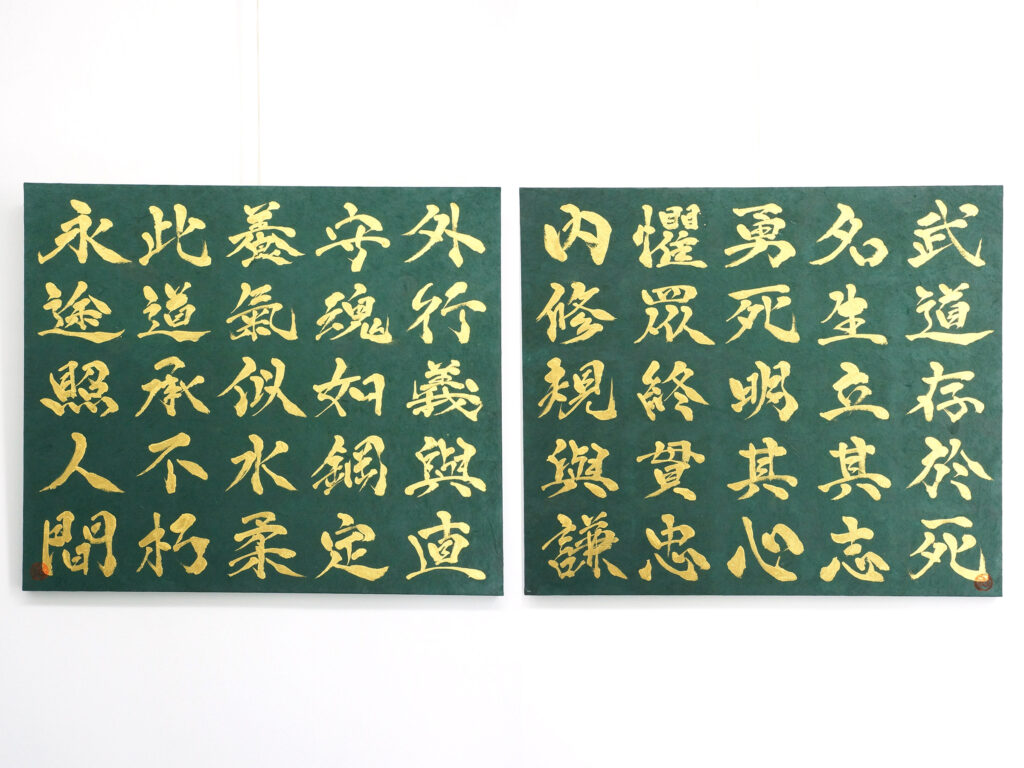 武道存於死
名生立其志
勇死明其心
懼眾終貫忠
內修規與謙
外行義與直
守魂如鋼定
養氣似水柔
此道承不朽
永途照人間